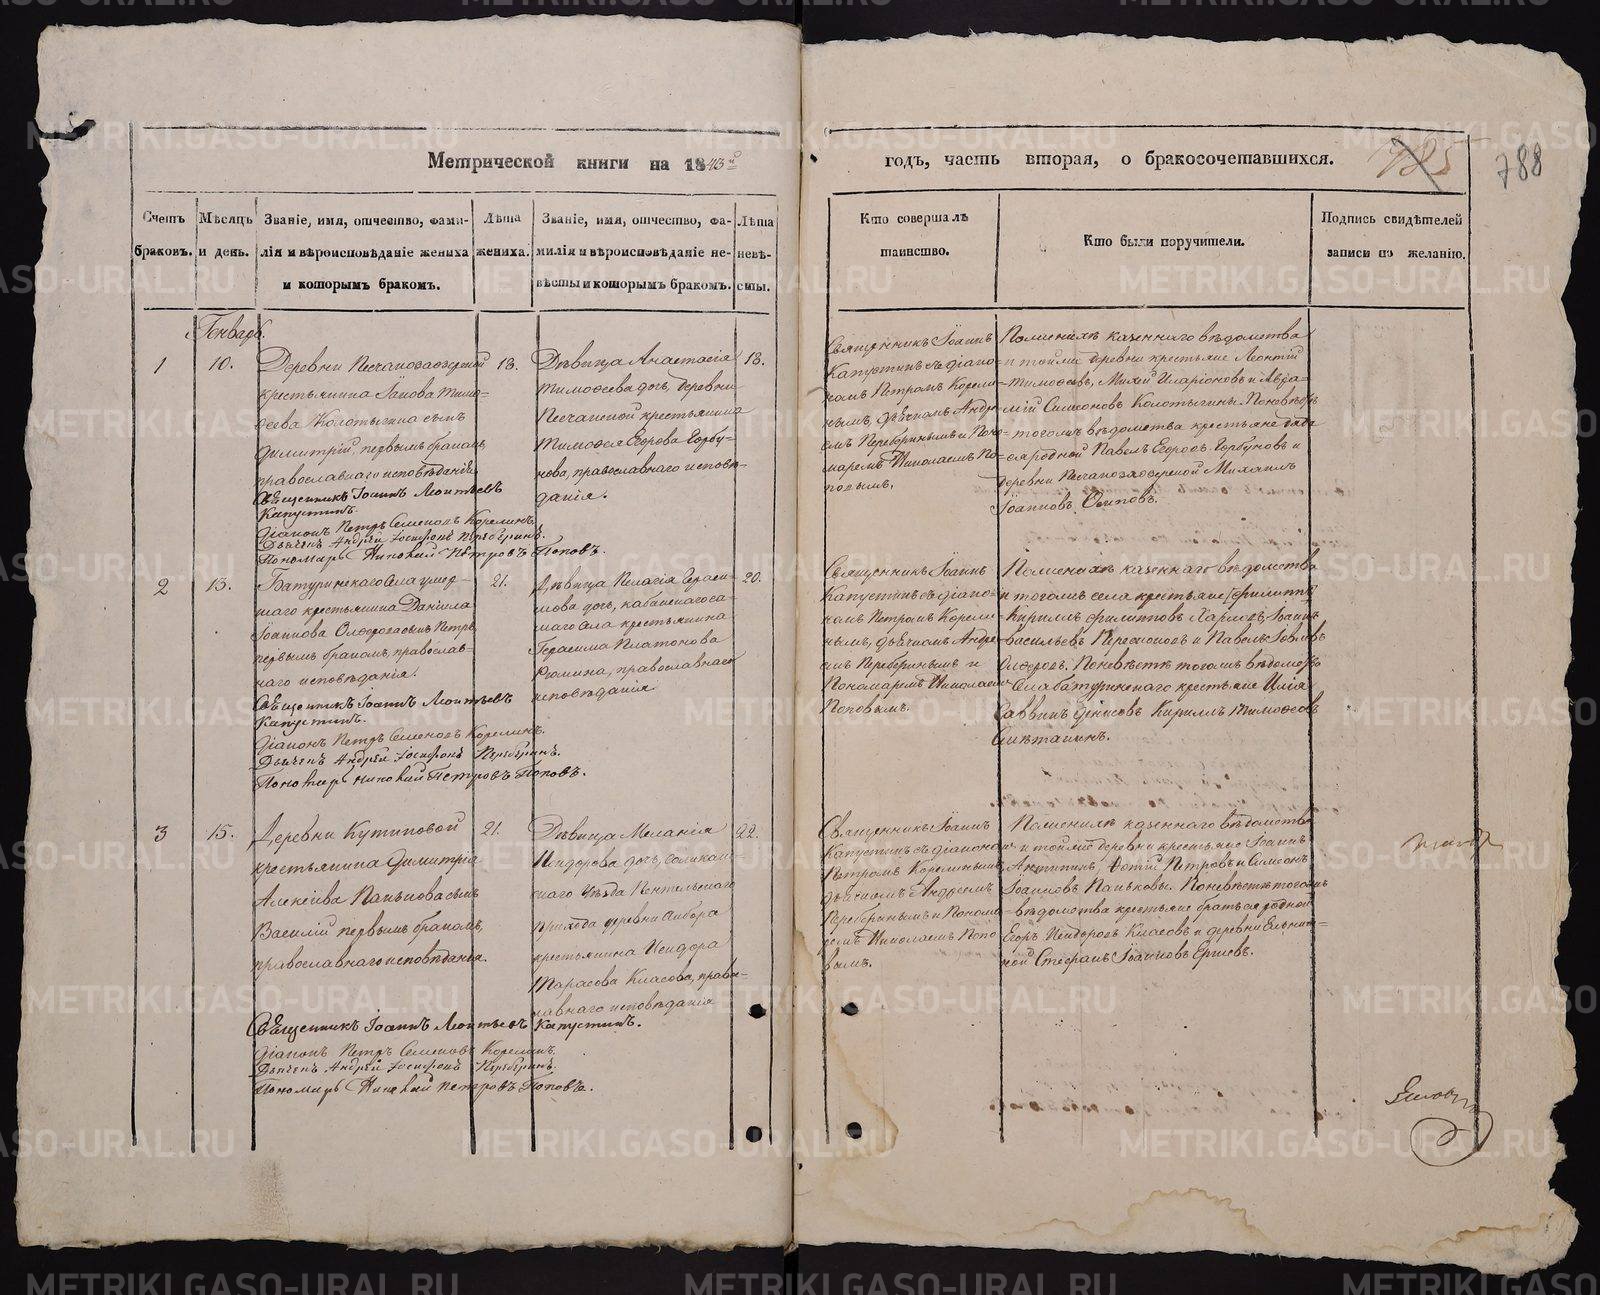 Метрической книги на 1843й
годъ, часть вторая, о бракосочетавшихся.
788
Счетъ браковъ.
Мѣсяцъ и день.
Званіе, имя, отчество, фами-
лія и вѣроисповѣданіе жениха
и которымъ бракомъ.
Лѣта
жениха.
Званіе, имя, отчество, фа-
милія и вѣроисповѣданіе не-
вѣсты и которымъ бракомъ.
Лѣта
невѣ-
сты.
Кто совершалъ
таинство.
Кто были поручители.
Подпись свидѣтелей
записи по желанію.
Генварь.
1
10.
Деревни Песчаноозерской
крестьянина
Колотыгина сынъ
Димитрій, первымъ бракомъ
православнаго исповѣданія
Священникъ Іоаннъ Леонтьевъ
Капустинъ.
Діаконъ Петръ Семеновъ Корелинъ.
Дьячекъ Андрей Іосифовъ Переберинъ.
Пономарь Николай Петровъ Поповъ.
18.
Дѣвица Анастасія
Тимофеева дочь, деревни
Песчанской крестьянина
Тимофея Егорова Горбу-
нова, православнаго исповѣ-
данія.
18.
Священникъ Іоаннъ
Капустинъ съ діако-
номъ Петромъ Корели-
нымъ, дьячкомъ Андре-
емъ Переберинымъ и Поно-
маремъ Николаемъ По-
повымъ.
По женихѣ казеннаго вѣдомства
и тойжъ деревни крестьяне Леонтій
Тимофеевъ, Михей Иларіоновъ и
Симеоновъ Колотыгины. По невѣстѣ
тогожъ вѣдомства крестьяне дядя
ея родной Павелъ Егоровъ Горбуновъ и
деревни Песчаноозерской Михаилъ
Іоанновъ Осиповъ.
2
13.
Батуринскаго села умер-
шаго крестьянина Даніила
Іоаннова сынъ Петръ
первымъ бракомъ, православ-
наго исповѣданія.
Священникъ Іоаннъ Леонтьевъ
Капустинъ.
Діаконъ Петръ Семеновъ Корелинъ.
Дьячекъ Андрей Іосифовъ Переберинъ.
Пономарь Николай Петровъ Поповъ.
21.
Дѣвица Пелагія Гераси-
мова дочь, кабанскаго са-
маго села крестьянина
Герасима Платонова
Рюмина, православнаго
исповѣданія
20.
Священникъ Іоаннъ
Капустинъ съ діако-
номъ Петромъ Корели-
нымъ, дьячкомъ Андре-
емъ Переберинымъ и
Пономаремъ Николаемъ
Поповымъ.
По женихѣ казеннаго вѣдомства
и тогожъ села крестьяне
Кириллъ Филиповъ Іоаннъ
Васильевъ и Павелъ
По невѣстѣ тогожъ вѣдомства
Села батуринскаго крестьяне Илія
Саввинъ Денисовъ Кириллъ Тимофеевъ
Смѣтанинъ.
3
15.
Деревни Кутиковой
крестьянина Димитрія
Алексѣева Панькова сынъ
Василій первымъ бракомъ,
православнаго исповѣданія.
Священникъ Іоаннъ Леонтьевъ Капустинъ.
Діаконъ Петръ Семеновъ Корелинъ.
Дьячекъ Андрей Іосифовъ Переберинъ.
Пономарь Николай Петровъ Поповъ.
21.
Дѣвица Меланія
Исидорова дочь, соликам-
скаго уѣзда
прихода деревни
крестьянина Исидора
Тарасова Класова, право-
славнаго исповѣданія
22.
Священникъ Іоаннъ
Капустинъ съ діакономъ
Петромъ Корелинымъ
дьячкомъ Андреемъ
Переберинымъ и Понома-
ремъ Николаемъ Попо-
вымъ.
По женихѣ казеннаго вѣдомства
и тойже деревни крестьяне Іоаннъ
Фотій Петровъ и Симеонъ
Іоанновъ Паньковы. По невѣстѣ тогожъ
вѣдомства крестьяне братъ ея родной
Егоръ Исидоровъ Класовъ и деревни
Стефанъ Іоанновъ Ершовъ.